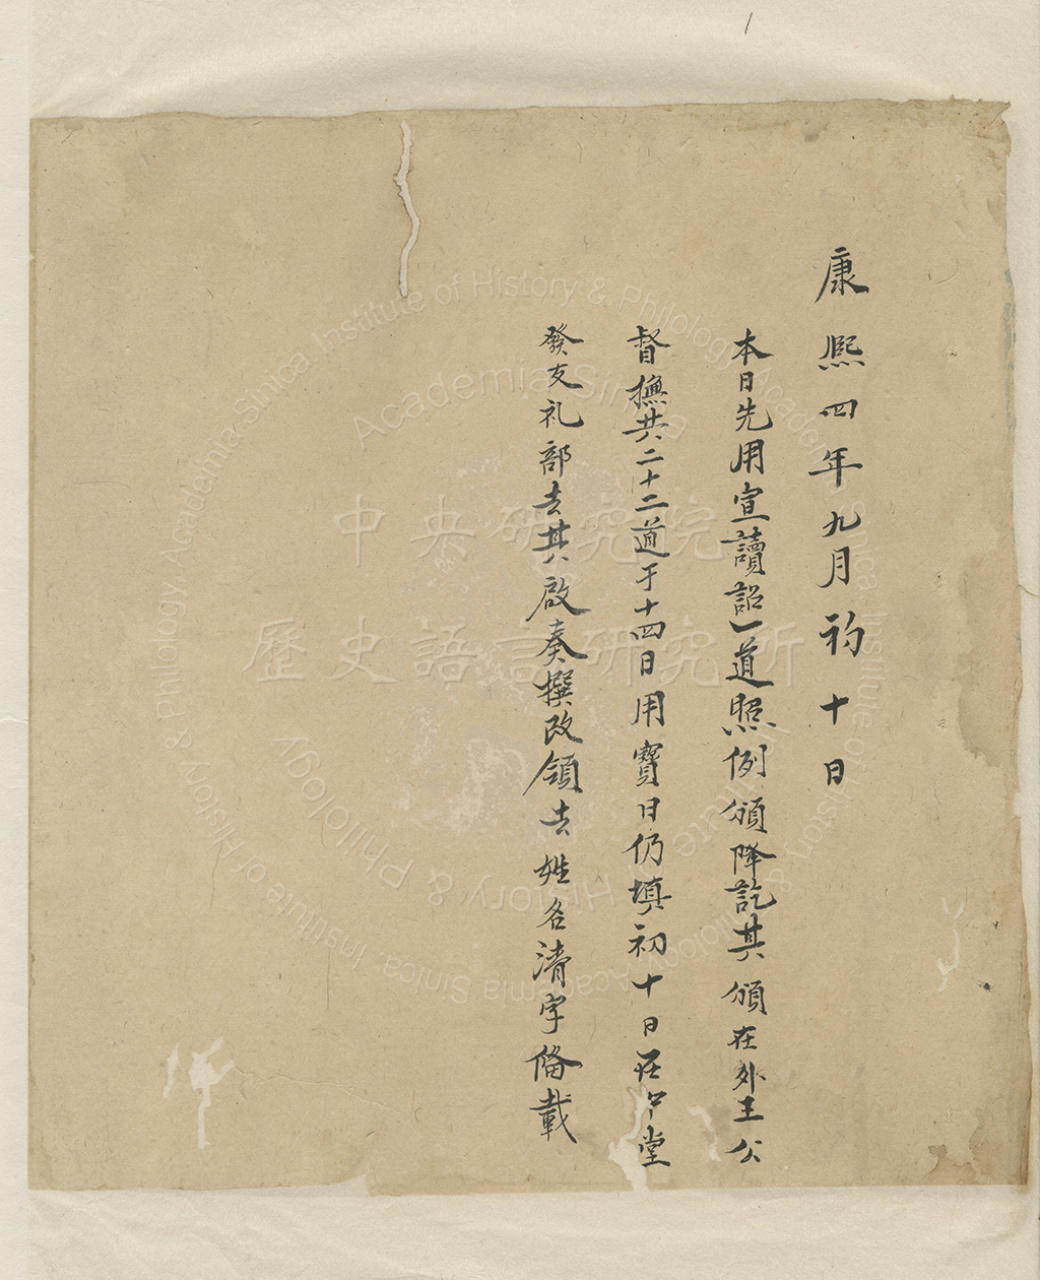 康熙四年九月初十日
本日先用宣讀詔一道照例頒降訖其頒在外王公
督撫共二十二道于十四日用寶日仍填初十日在中堂
發交礼部去其啟奏撰改領去姓名清字俻載
中央研究院
歷史語言研究所
Institute of History & Philology, Academia Sinica